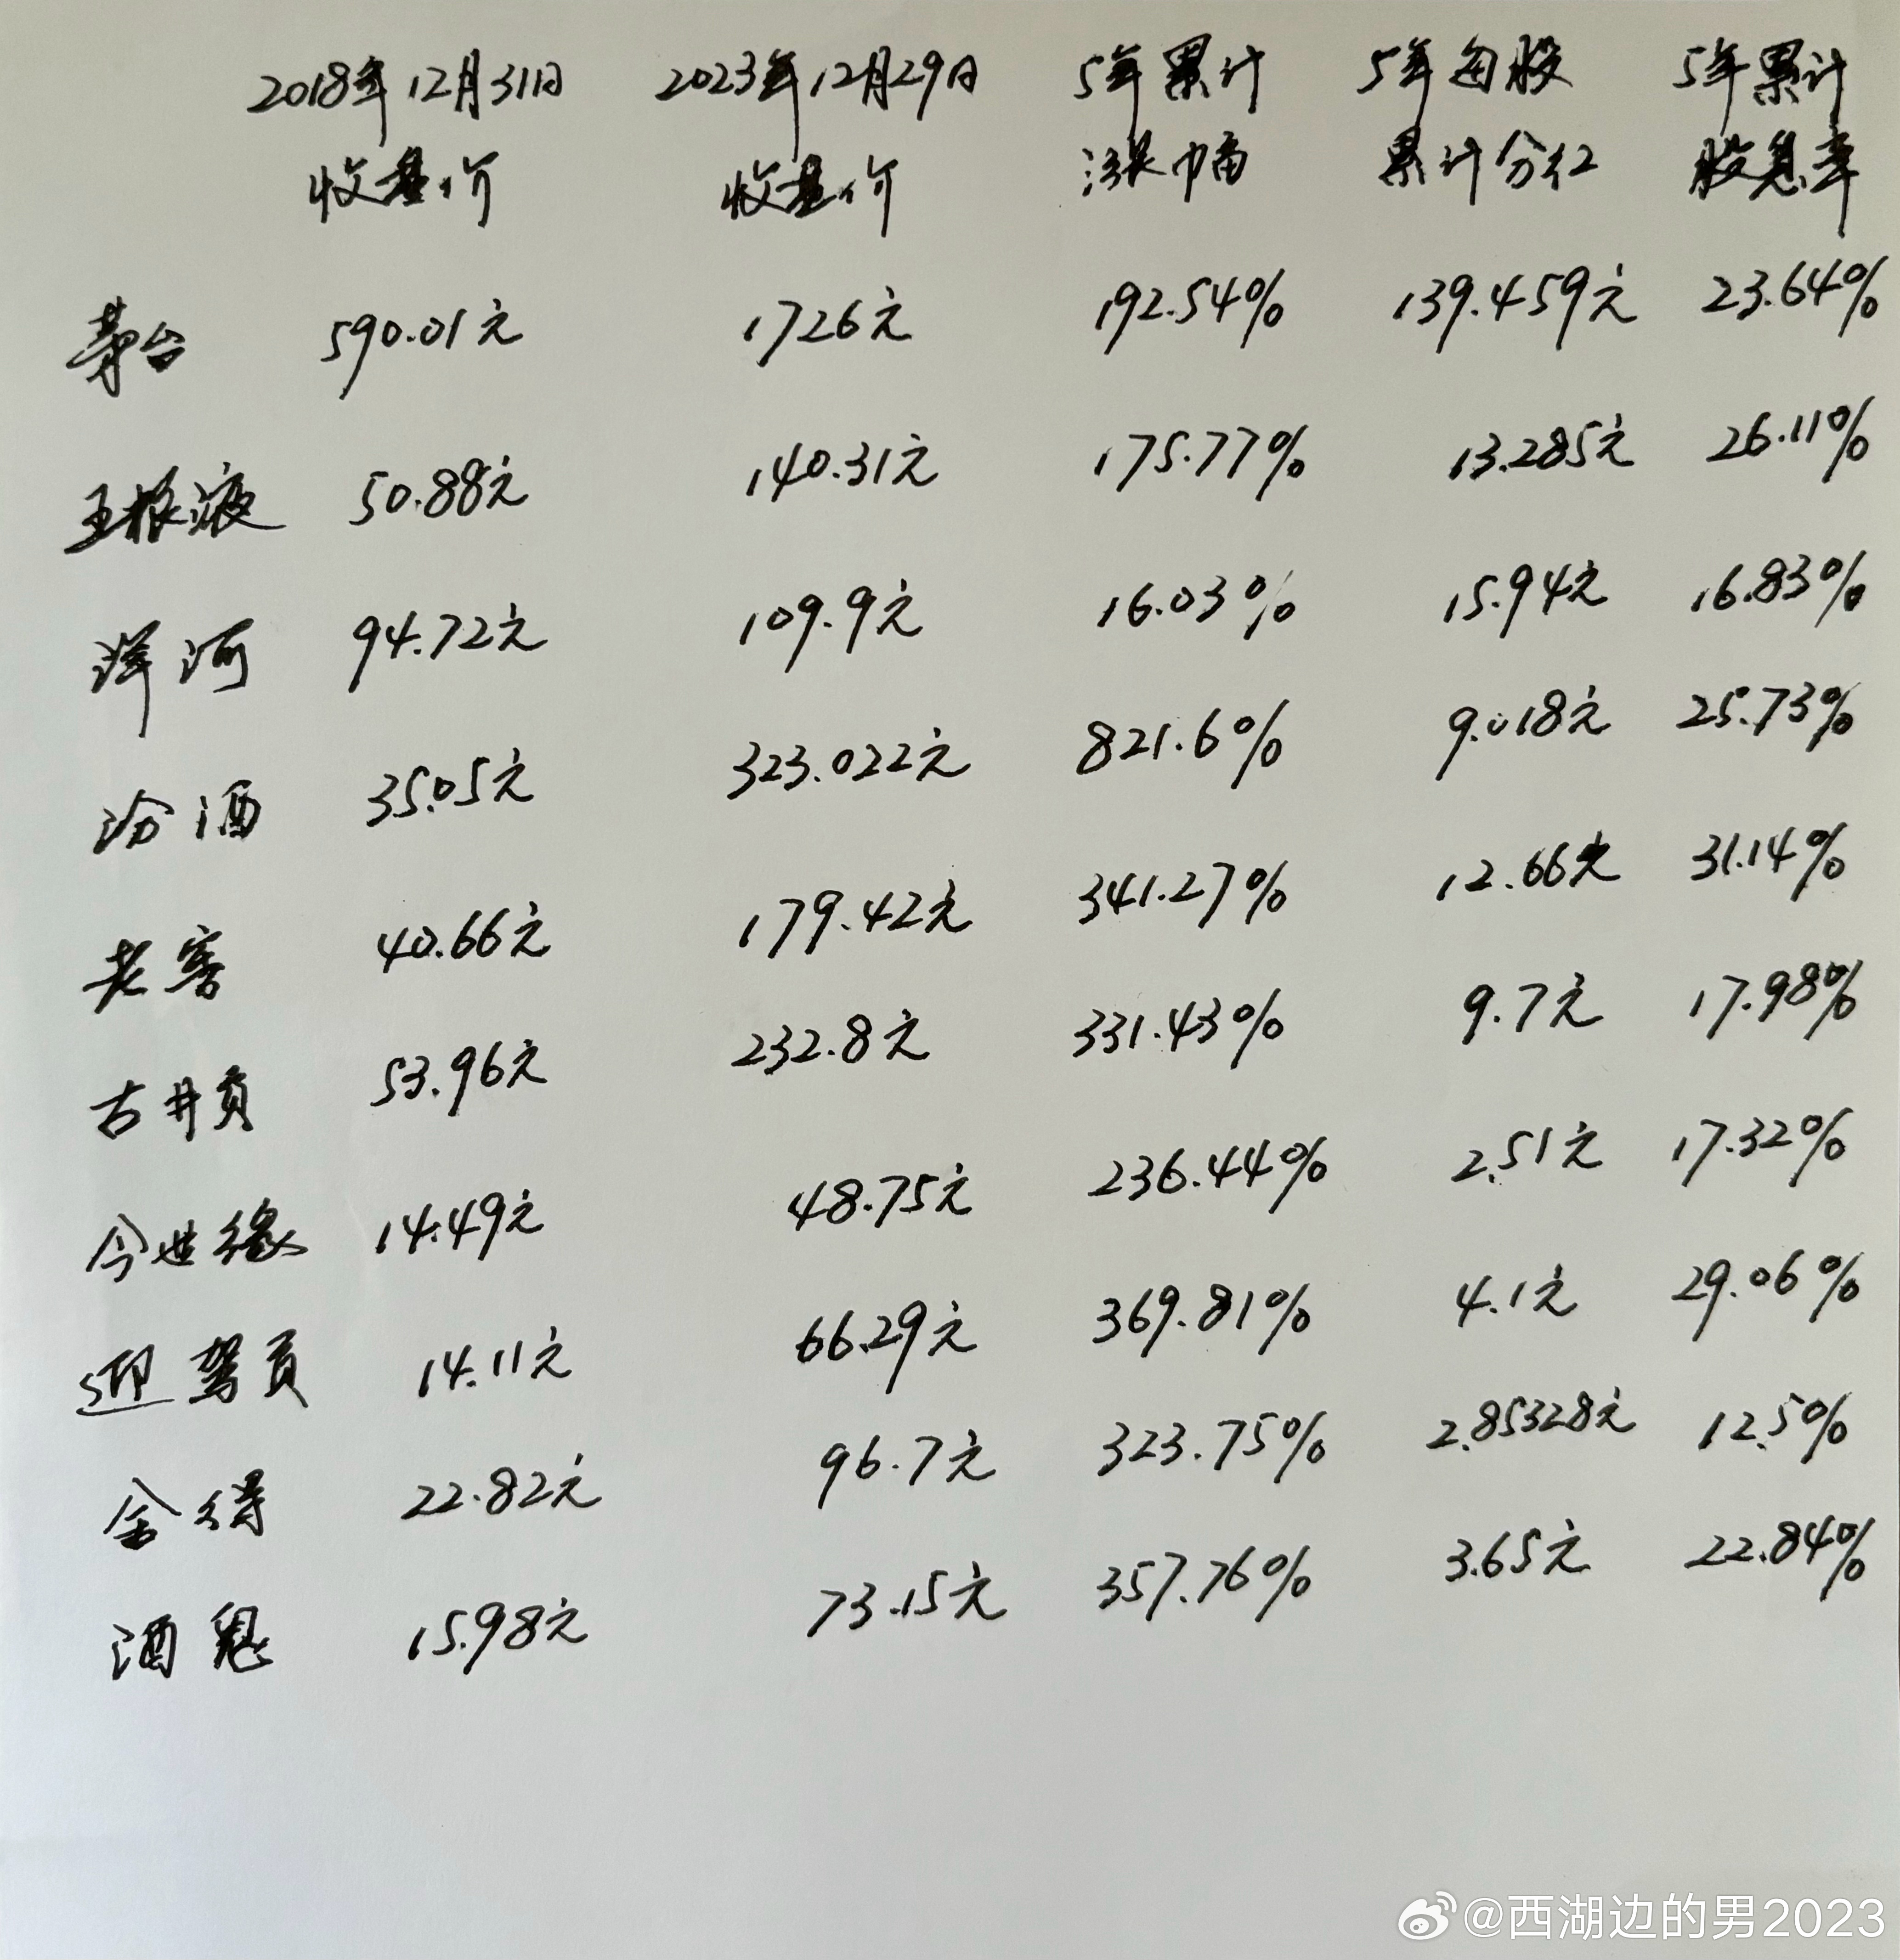 2018年12月31日 2023年12月29日 5年累计 5年每股 5年累计
收盘价 收盘价 涨幅 累计分红 股息率
茅台 590.01元 1726元 192.54% 139.459元 23.64%
五粮液 50.88元 140.31元 175.77% 13.285元 26.11%
洋河 94.72元 109.9元 16.03% 15.94元 16.83%
汾酒 35.05元 323.022元 821.6% 9.018元 25.73%
老窖 40.66元 179.42元 341.27% 12.66元 31.14%
古井贡 53.96元 232.8元 331.43% 9.7元 17.98%
今世缘 14.49元 48.75元 236.44% 2.51元 17.32%
迎驾贡 14.11元 66.29元 369.81% 4.1元 29.06%
舍得 22.82元 96.7元 323.75% 2.85328元 12.5%
酒鬼 15.98元 73.15元 357.76% 3.65元 22.84%
@西湖边的男2023